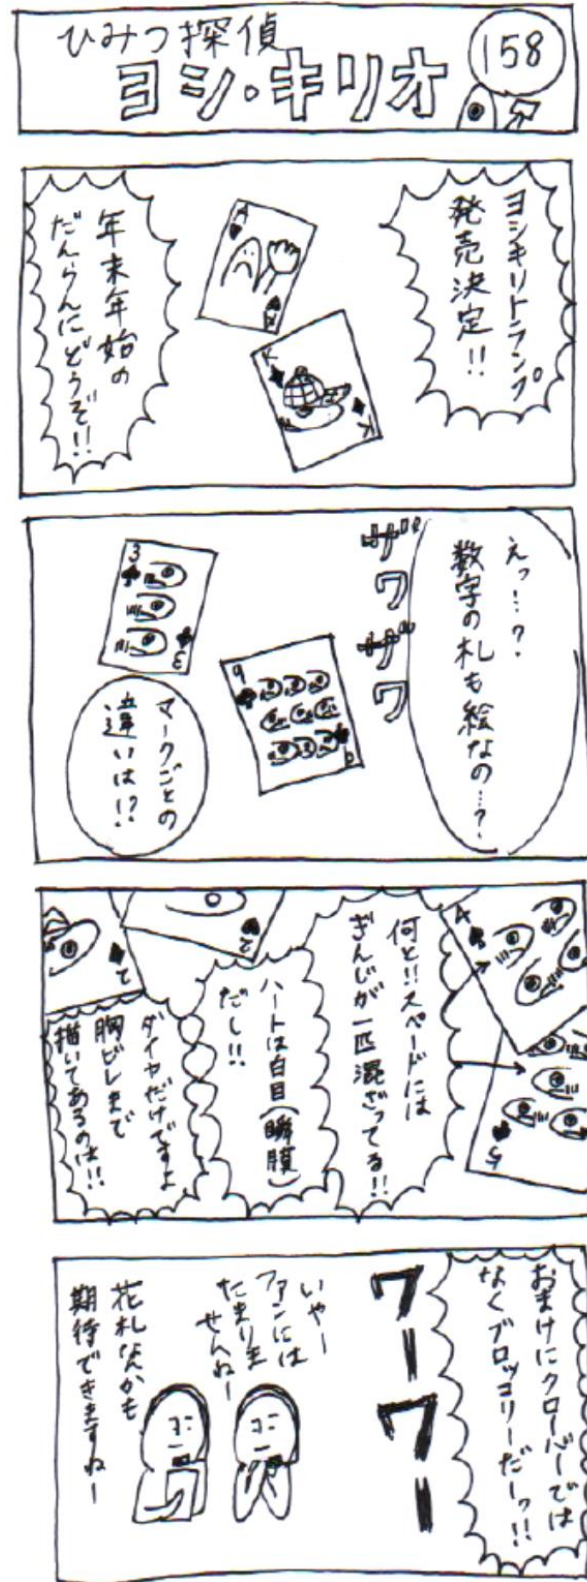 ひみつ探偵
ヨシ・キリオ
158
ヨシキリトランプ
発売決定!!
年末年始の
だんらんにどうぞ!!
A
A
K
K
えっ…?
数字の札も絵なの…?
ザワ
ザワ
3
3
9
9
マークごとの
違いは!?
4
5
何と!!スペードには
ぎんじが一匹混ざってる!!
2
ハートは白目(瞬膜)
だし!!
2
ダイヤだけですよ
胸ビレまで
描いてあるのは!!
おまけにクローバーでは
なくブロッコリーだーッ!!
ワー
ワー
いやー
ファンには
たまりま
せんねー
花札なんかも
期待できますねー